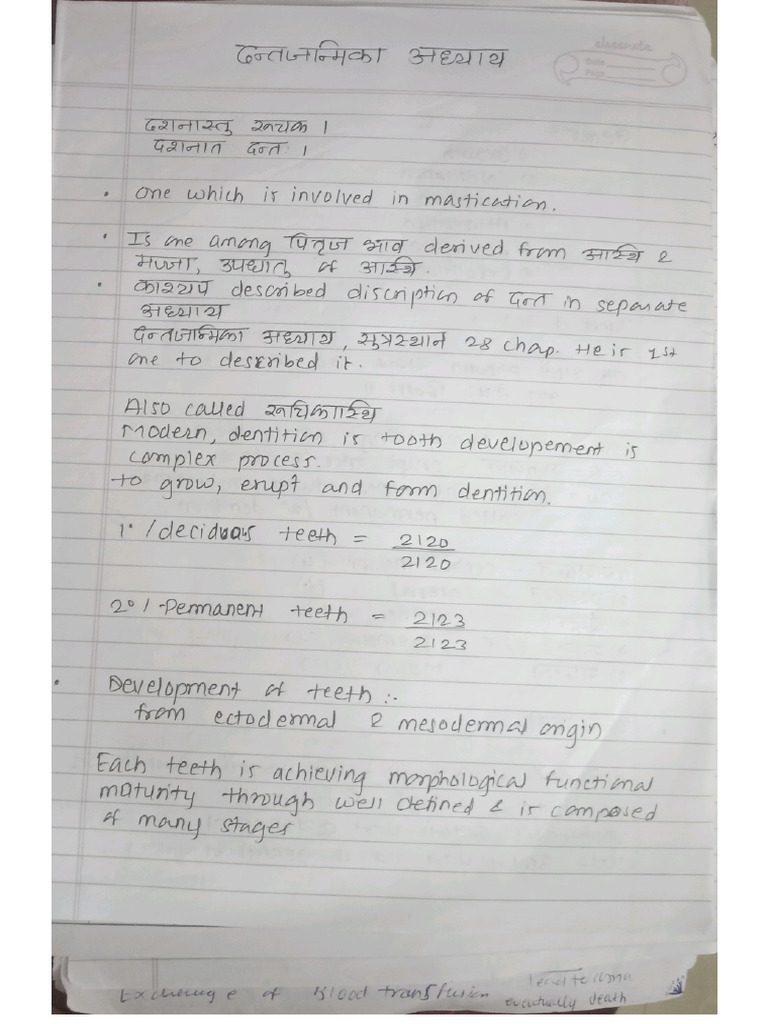 दन्तजन्मिका अध्याय
classmate
Date
Page
दशनास्तु रूचक ।
दशनात दन्तः ।
• one which is involved in mastication.
• Is one among पितृज भाव derived from आस्थि &
मज्जा, उपधातु of आस्थि.
• काश्यप described discription of दन्त in separate
अध्याय
दन्तजन्मिका अध्याय, सुत्रस्थान 28 chap. He is 1st
one to described it.
Also called रूचिकास्थि
Modern, dentition is tooth developement is
complex process.
to grow, erupt and form dentition.
1° / deciduous teeth = 2120
2120
2° / -Permanent teeth = 2123
2123
• Development of teeth :-
from ectodermal & mesodermal origin
Each teeth is achieving morphological functional
maturity through well defined & is composed
of many stages
Exchange of Blood transfusion
eventually death